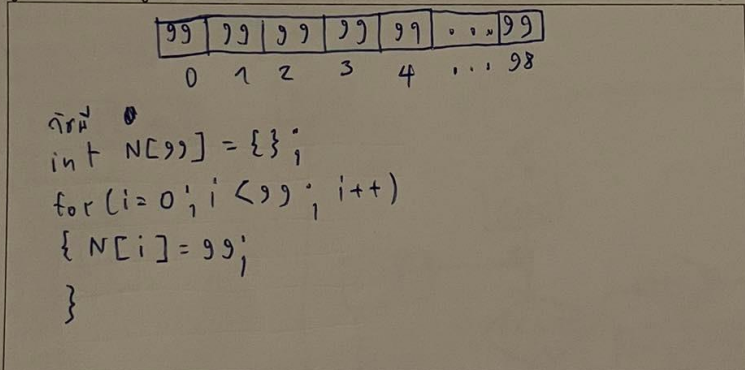 99 99 99 99 99 ... 99
0 1 2 3 4 ... 98
int N[99] = {};
for (i = 0; i < 99; i++)
{ N[i] = 99;
}